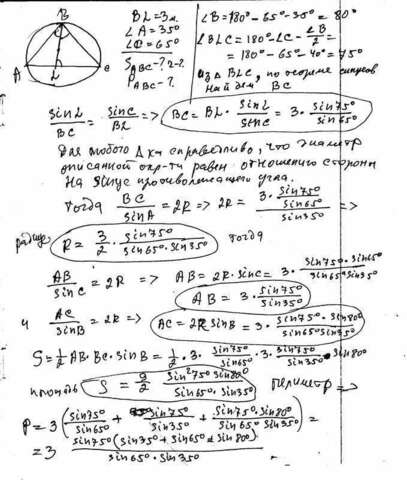 B
A
L
C
BL = 3м.
∠A = 35°
∠C = 65°
S ABC - ? r - ?
P ABC - ?
∠B = 180° - 65° - 35° = 80°
∠BLC = 180° - ∠C - ∠B/2 =
= 180° - 65° - 40° = 75°
из Δ BLC, по теореме синусов
найдем BC
sin L / BC = sin C / BL => BC = BL · sin L / sin C = 3 · sin 75° / sin 65°
Для любого Δ-ка справедливо, что диаметр
описанной окр-ти равен отношению стороны
на sinus противолежащего угла.
Тогда BC / sin A = 2R => 2R = 3 · sin 75° / sin 65° / sin 35° =>
радиус R = 3/2 · sin 75° / sin 65° · sin 35° тогда
AB / sin C = 2R => AB = 2R · sin C = 3 · sin 75° · sin 65° / sin 65° sin 35°
AB = 3 · sin 75° / sin 35°
и AC / sin B = 2R => AC = 2R sin B = 3 · sin 75° · sin 80° / sin 65° sin 35°
S = 1/2 AB · BC · sin B = 1/2 · 3 · sin 75° / sin 65° · 3 · sin 75° / sin 35° · sin 80°
площадь S = 9/2 sin² 75° sin 80° / sin 65° · sin 35° периметр =>
P = 3 ( sin 75° / sin 65° + sin 75° / sin 35° + sin 75° · sin 80° / sin 65° sin 35° ) =
= 3 sin 75° (sin 35° + sin 65° + sin 80°) / sin 65° · sin 35°